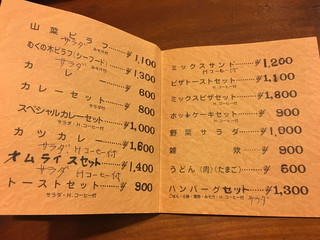 山菜ピラフ……¥1,100
サラダ みそ汁付
むくの木ピラフ(シーフード)…¥1,300
サラダ みそ汁付
カレー……¥600
カレーセット……¥800
サラダ付
スペシャルカレーセット…¥1,000
サラダ・H.コーヒー付
カツカレー……¥1,600
サラダ Hコーヒー付
オムライスセット……¥1,400
サラダ Hコーヒー付
トーストセット……¥900
サラダ・H.コーヒー付
ミックスサンド……¥1,200
Hコーヒー付
ピザトーストセット……¥1,100
H.コーヒー付
ミックスピザセット……¥1,800
H.コーヒー付
ホットケーキセット……¥900
H.コーヒー付
野菜サラダ……¥1,000
雑炊……¥900
うどん(肉)(たまご)……¥600
ハンバーグセット……¥1,300
サラダ